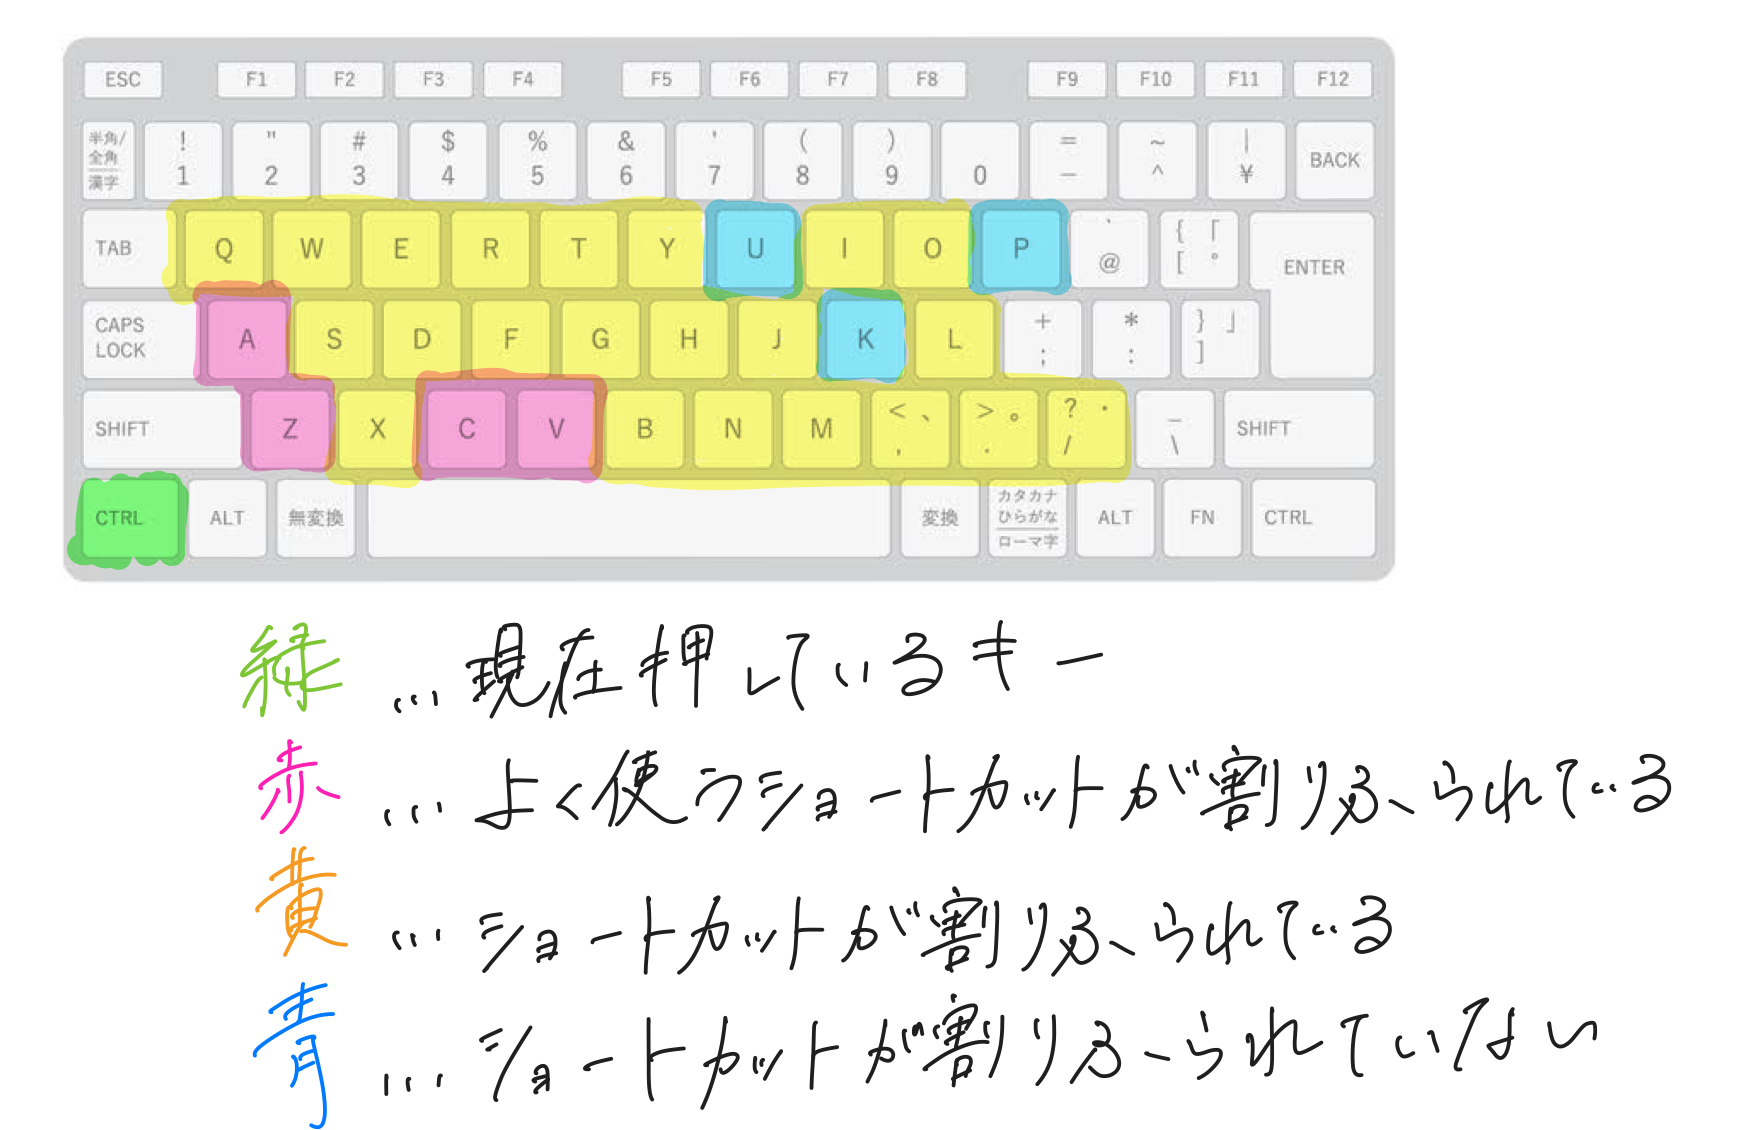 ESC F1 F2 F3 F4 F5 F6 F7 F8 F9 F10 F11 F12
半角/全角 漢字 ! 1 " 2 # 3 $ 4 % 5 & 6 ' 7 ( 8 ) 9 0 = − ~ ^ | ¥ BACK
TAB Q W E R T Y U I O P ` @ { 「 [ ° ENTER
CAPS LOCK A S D F G H J K L + ; * : } 」 ]
SHIFT Z X C V B N M < 、 , > 。 . ? ・ / _ \ SHIFT
CTRL ALT 無変換 変換 カタカナ ひらがな ローマ字 ALT FN CTRL
緑 ... 現在押しているキー
赤 ... よく使うショートカットが割りふられている
黄 ... ショートカットが割りふられている
青 ... ショートカットが割りふられていない